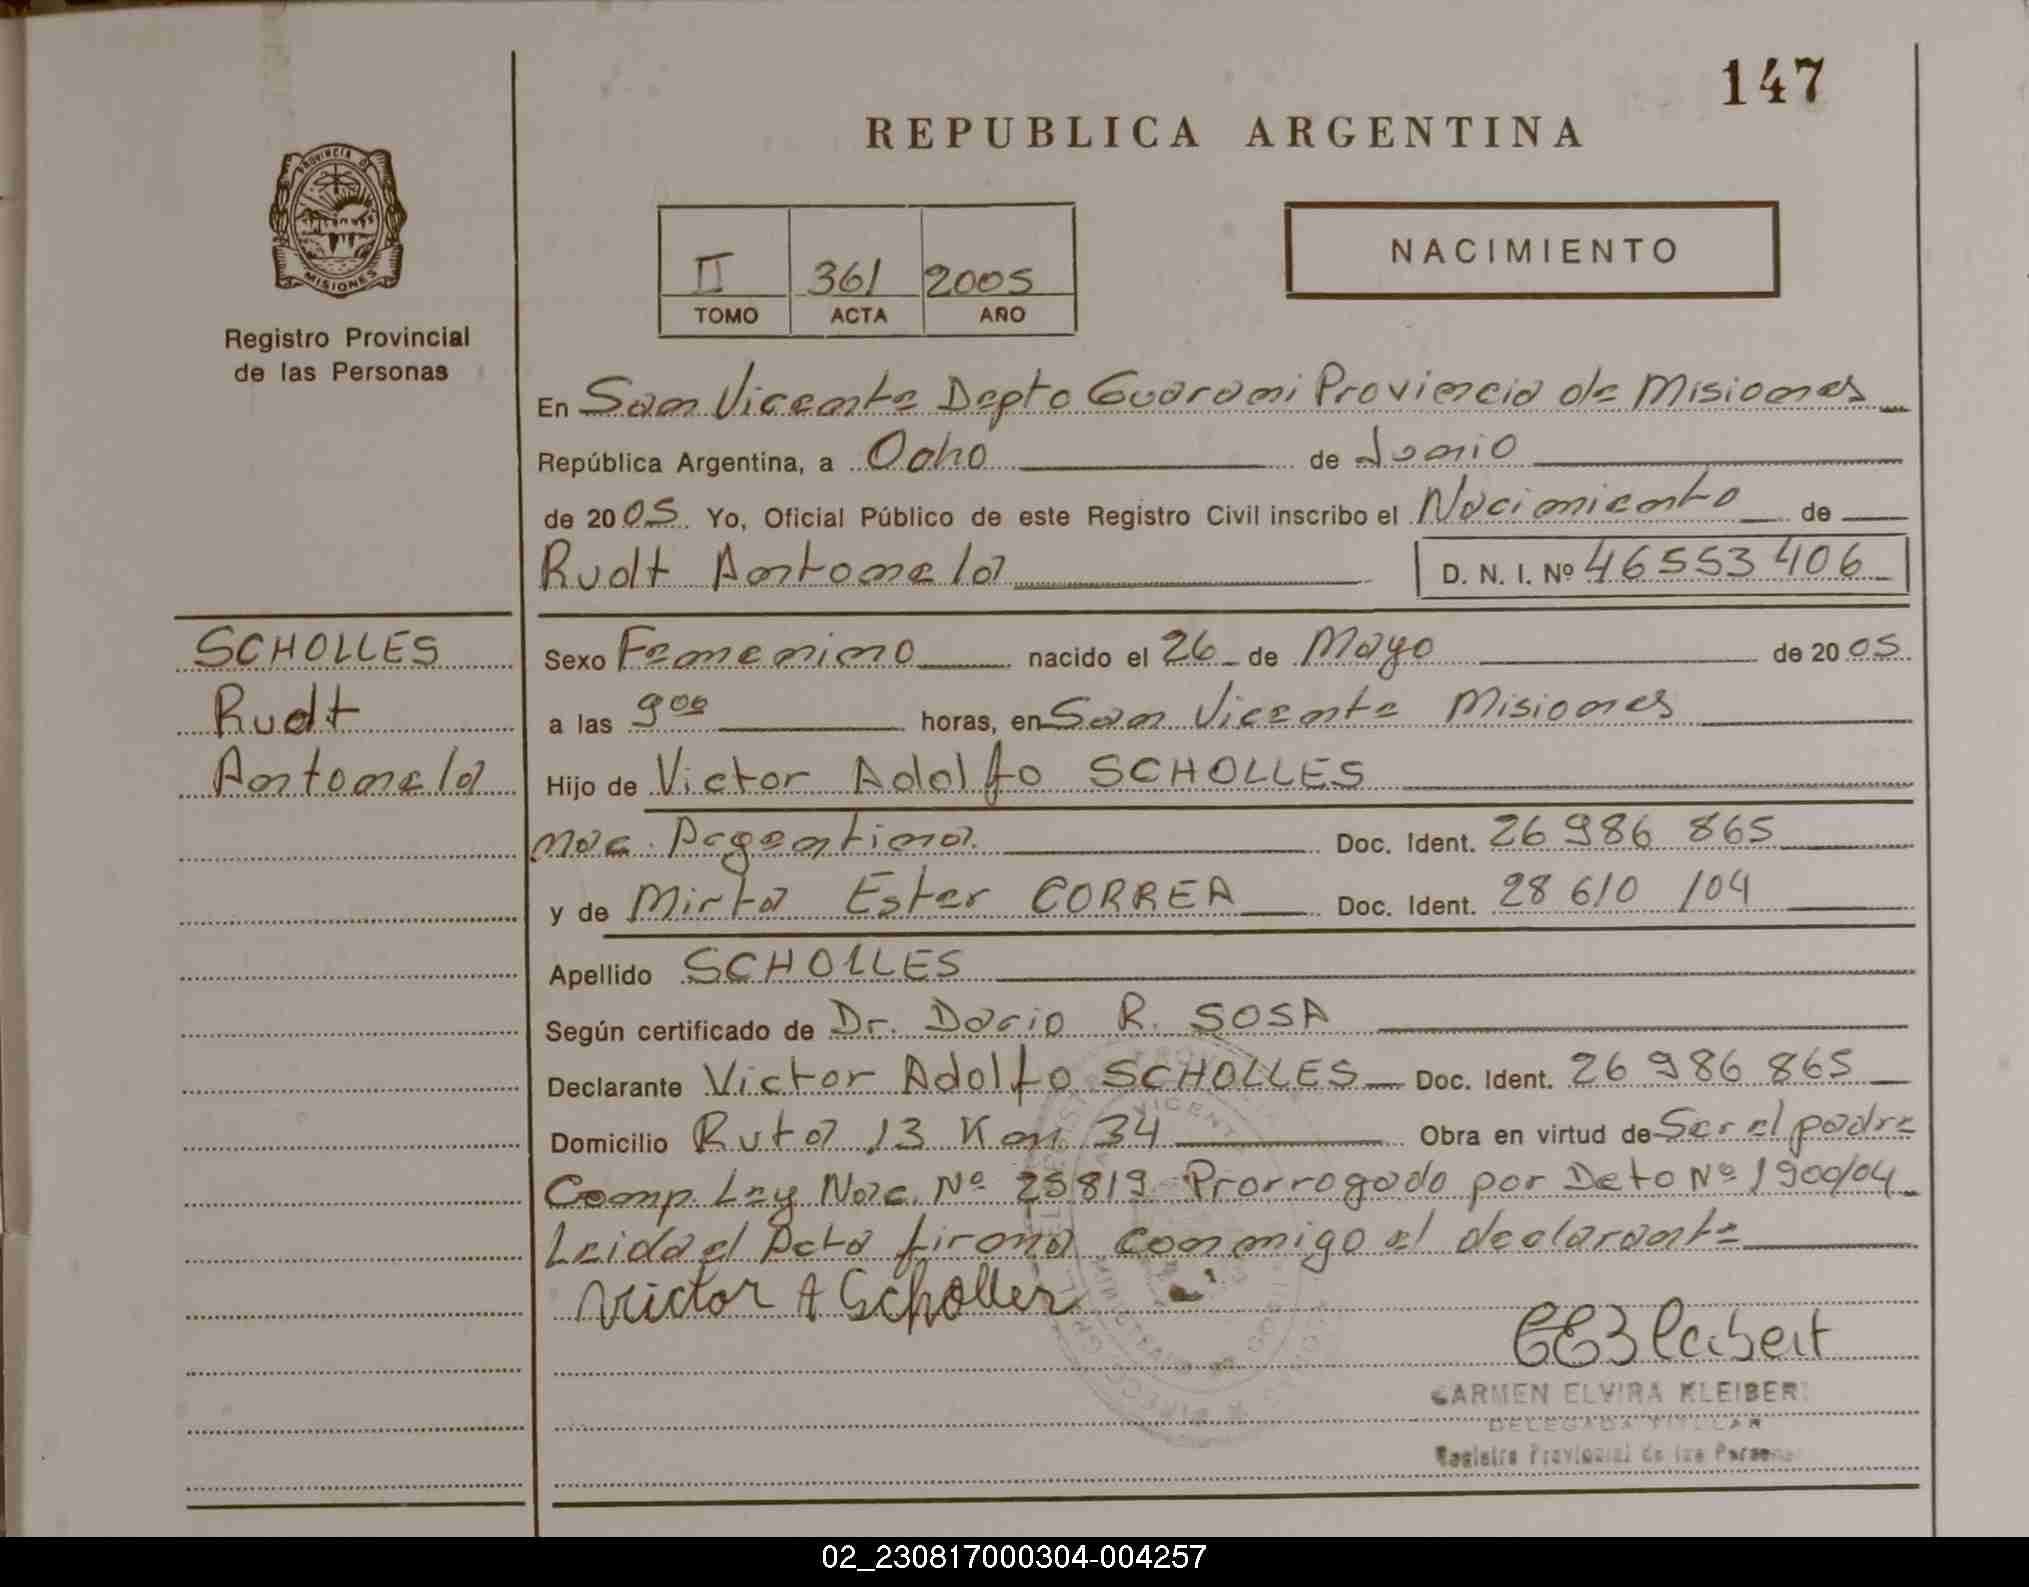 147
REPUBLICA ARGENTINA
PROVINCIA DE
MISIONES
Registro Provincial
de las Personas
II 361 2005
TOMO ACTA AÑO
NACIMIENTO
En San Vicente Depto Guarani Provincia de Misiones
República Argentina, a Ocho de Junio
de 2005. Yo, Oficial Público de este Registro Civil inscribo el Nacimiento de
Rudt Antonela D. N. I. Nº 46553406
SCHOLLES
Rudt
Antonela
Sexo Femenino nacido el 26 de Mayo de 2005.
a las 9⁰⁰ horas, en San Vicente Misiones
Hijo de Victor Adolfo SCHOLLES
nac. Argentina. Doc. Ident. 26 986 865
y de Mirta Ester CORREA Doc. Ident. 28 610 104
Apellido SCHOLLES
Según certificado de Dr. Dario R. SOSA
Declarante Victor Adolfo SCHOLLES Doc. Ident. 26 986 865
Domicilio Ruta 13 Km 34 Obra en virtud de Ser el padre
Comp. Ley Nac. Nº 25819 Prorrogado por Deto Nº 1900/04
Leida el Acta firma conmigo el declarante
Victor A Scholles
CARMEN ELVIRA KLEIBER
DELEGADA TITULAR
Registro Provincial de las Personas
02_230817000304-004257